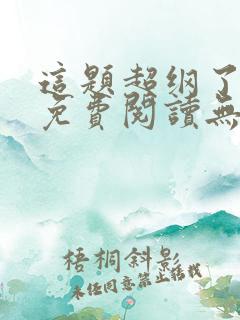 這題超纲了
免費閱讀無
梧桐斜影
未经同意禁止转载